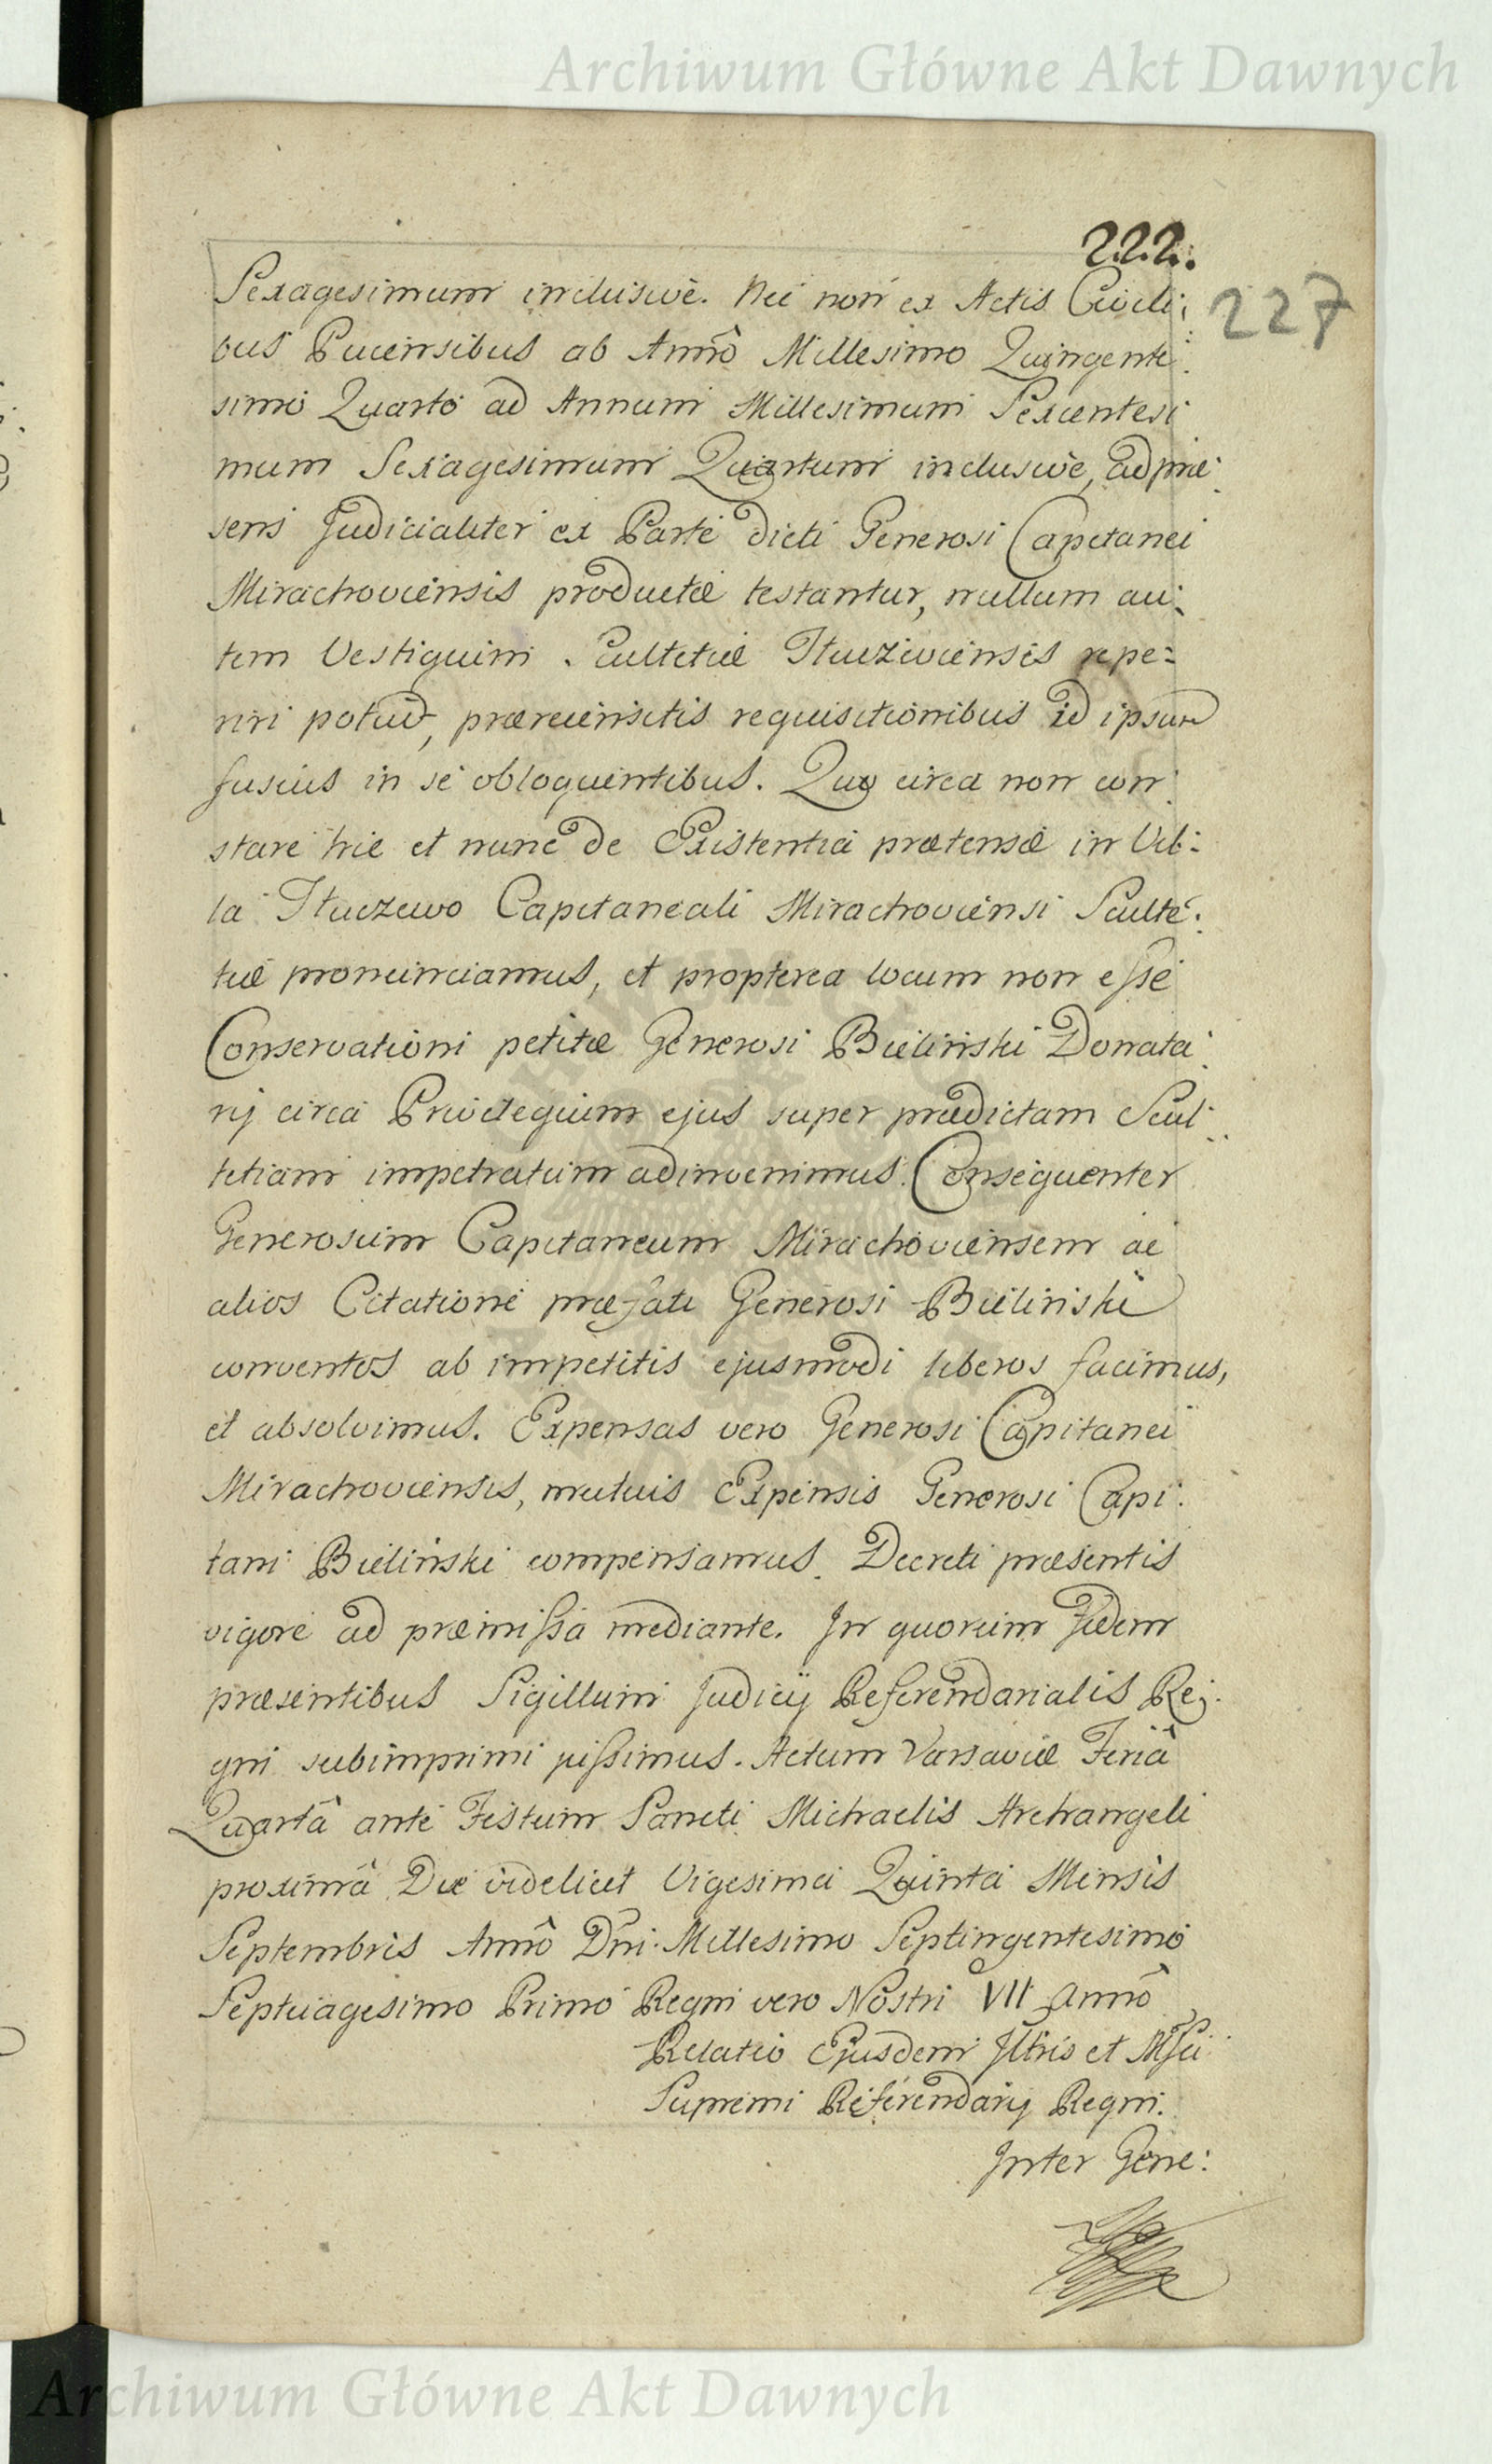 Archiwum Główne Akt Dawnych
222.
227
Sexagesimum inclusivè. Nec non ex Actis Civili:
bus Pucensibus ab Annô Millesimo Quingente:
simo Quarto ad Annum Millesimum Sexcentesi
mum Sexagesimum Quartum inclusivè, ad præ:
sens Judicialiter ex Parte dicti Generosi Capitanei
Mirachoviensis productæ testantur, nullum au:
tem Vestigium Scultetiæ Tłuczeviensis repe:
riri potuit, prærecensitis requisitionibus id ipsum
fusius in se obloquentibus. Quo circa non con:
stare hic et nunc de Existentia prætensæ in Vil:
la Tłuczewo Capitaneali Mirachoviensi Sculte:
tiæ pronunciamus, et propterea locum non esse
Conservationi petitæ Generosi Bieliński Donata:
rij circa Privilegium ejus super prædictam Scul:
tetiam impetratum adinvenimus. Consequenter
Generosum Capitaneum Mirachoviensem ac
alios Citatione præfati Generosi Bieliński
conventos ab impetitis ejusmodi liberos facimus,
et absolvimus. Expensas vero Generosi Capitanei
Mirachoviensis, mutuis Expensis Generosi Capi:
tani Bieliński compensamus. Decreti præsentis
vigore ad præmissa mediante. In quorum Fidem
præsentibus Sigillum Judicij Referendarialis Re:
gni subimprimi jussimus. Actum Varsaviæ Feriâ
Quartâ ante Festum Sancti Michaelis Archangeli
proximâ Die videlicet Vigesima Quinta Mensis
Septembris Annô Dni Millesimo Septingentesimo
Septuagesimo Primo Regni vero Nostri VII Annô
Relatio Ejusdem Illris et Mfci
Supremi Referendarij Regni.
Inter Gene:
Archiwum Główne Akt Dawnych